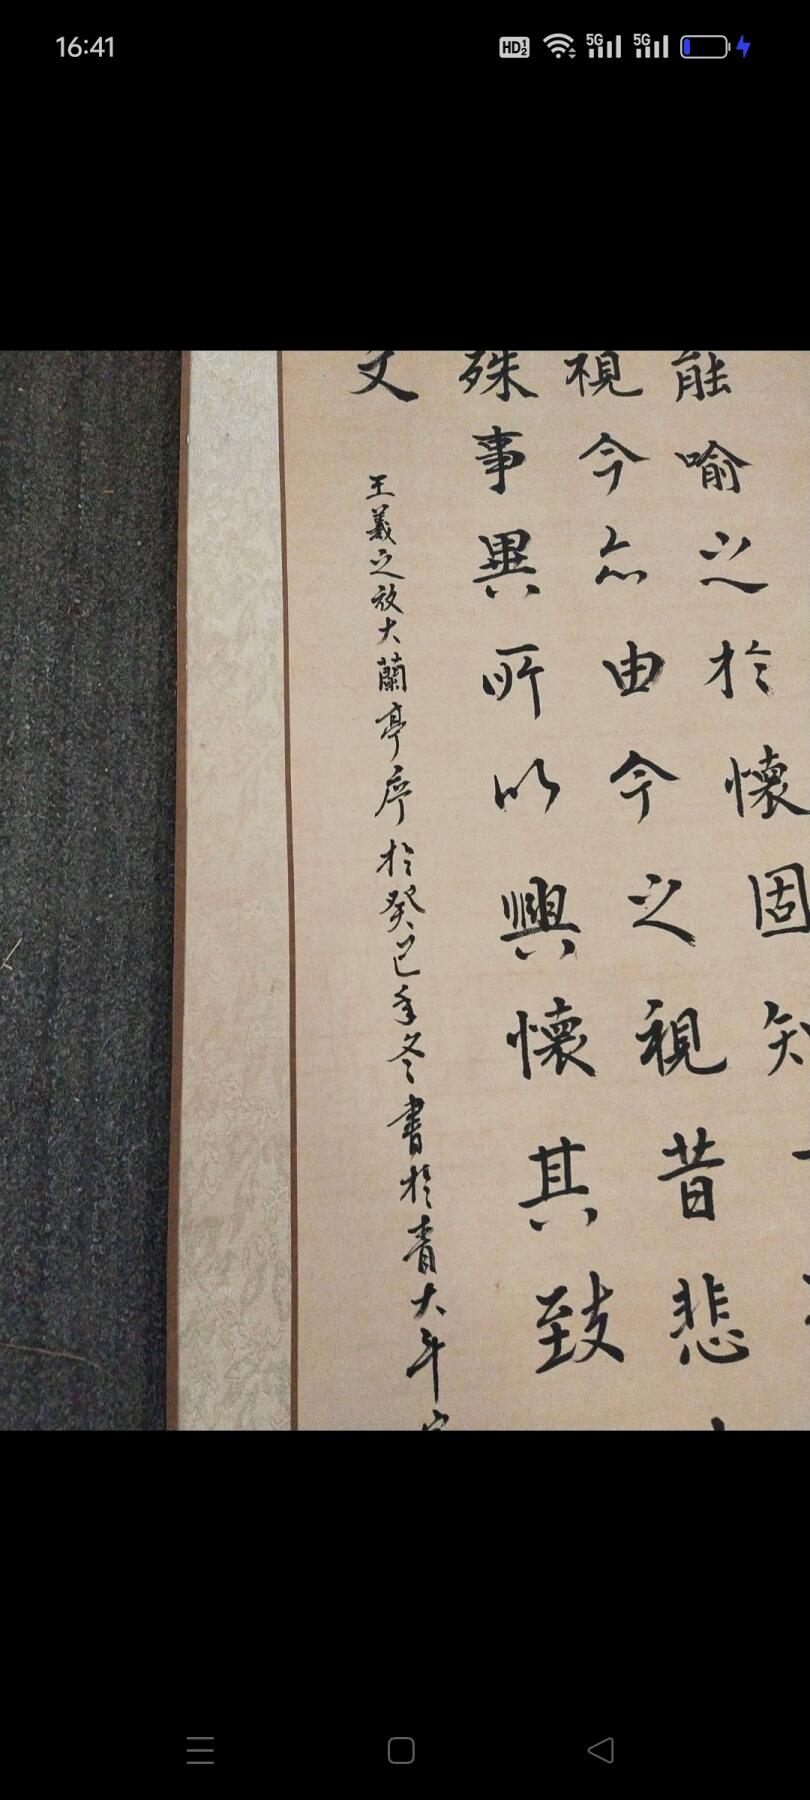 16:41
HD 1 2 5G 5G
能喻之於懷固知
視今亦由今之視昔悲
殊事異所以興懷其致
文
王羲之放大蘭亭序於癸巳年冬書於青大年